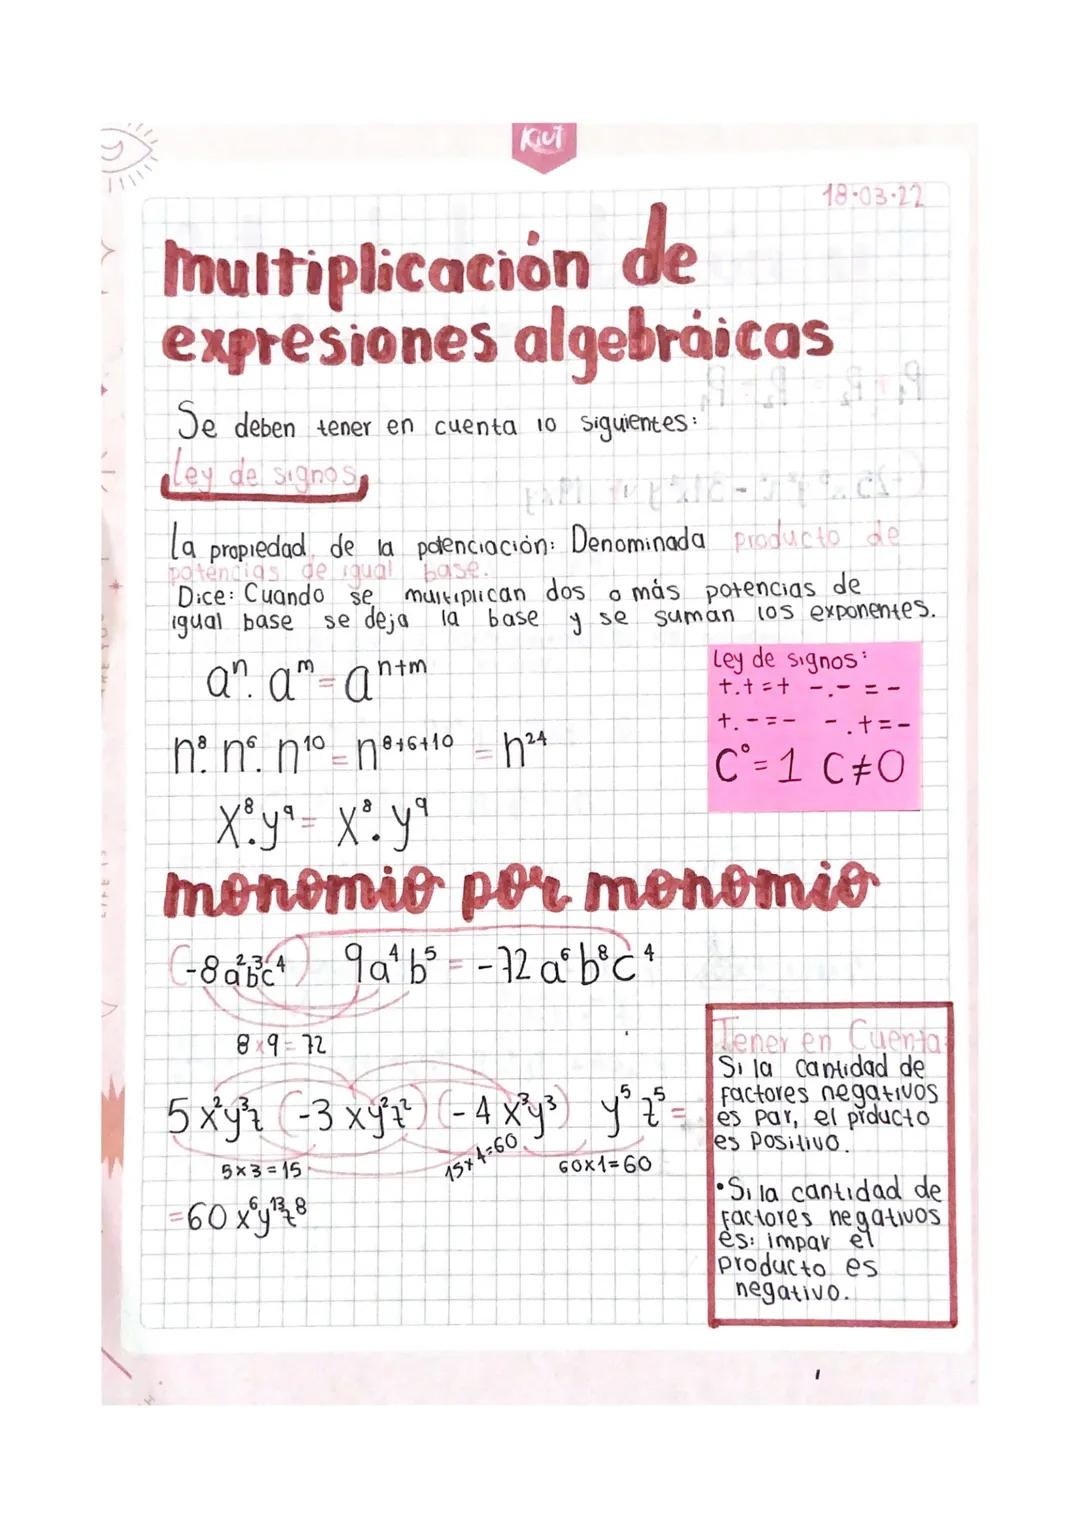 Kiut
18.03.22
multiplicación de
expresiones algebráicas
Se deben tener en cuenta lo siguientes:
Ley de signos
La propiedad de la potenciación: Denominada producto de
potencias de igual base.
Dice: Cuando se multiplican dos o más potencias de
igual base se deja la base y se suman los exponentes.
aⁿ. aᵐ = aⁿ⁺ᵐ
n⁸. n⁶. n¹⁰ = n⁸⁺⁶⁺¹⁰ = n²⁴
X⁸.y⁹ = X⁸. y⁹
Ley de signos:
+.+=+ -.- = -
+.-=- -.+=-
C⁰=1 C≠0
monomio por monomio
(-8a²b³c⁴) 9a⁴b⁵ = -72a⁶b⁸c⁴
8x9=72
5x²y³z (-3xy²z²) (-4x³y³) y⁵z⁵=
5x3=15 15x4=60 60x1=60
=60x⁶y¹³z⁸
Tener en Cuenta:
Si la cantidad de
factores negativos
es par, el prducto
es positivo.
•Si la cantidad de
factores negativos
es: impar el
producto es
negativo.